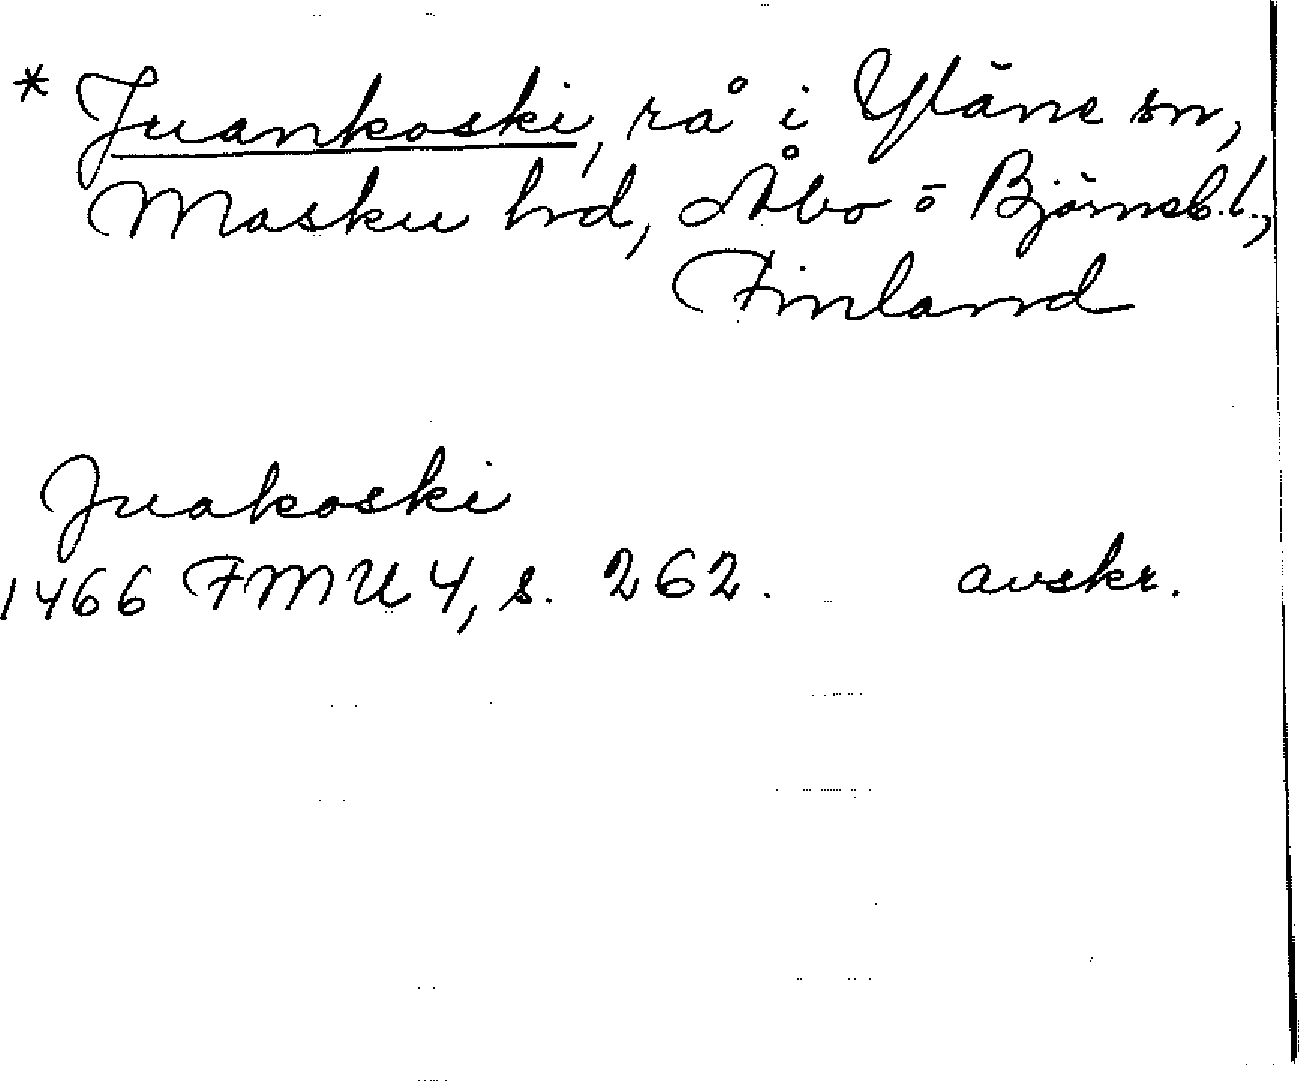 * Juankoski, rå i Yläne sn,
Masku hd, Åbo o Björneb. l.,
Finland
Juakoski
1466 FMU 4, s. 262. avskr.